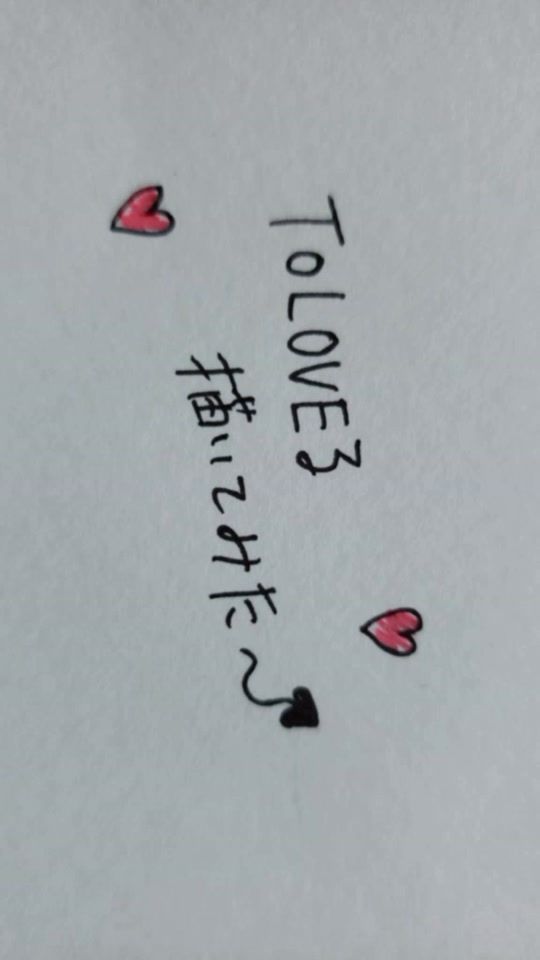 ToLOVEる
描いてみた〜